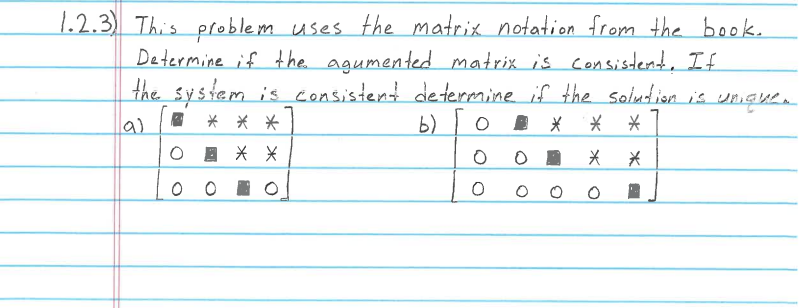 1.2.3) This problem uses the matrix notation from the book.
Determine if the agumented matrix is consistent. If
the system is consistent determine if the solution is unique.
a) [ ■ * * * ] b) [ 0 ■ * * * ]
[ 0 ■ * * ] [ 0 0 ■ * * ]
[ 0 0 ■ 0 ] [ 0 0 0 0 ■ ]